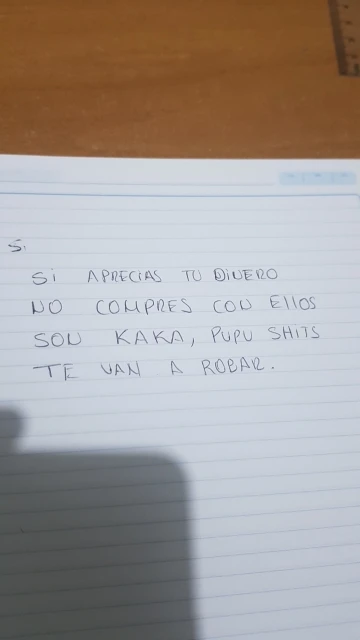 S.
Si APRECIAS TU DINERO
NO COMPRES CON EllOS
SON KAKA, PUPU SHITS
TE VAN A ROBAR.